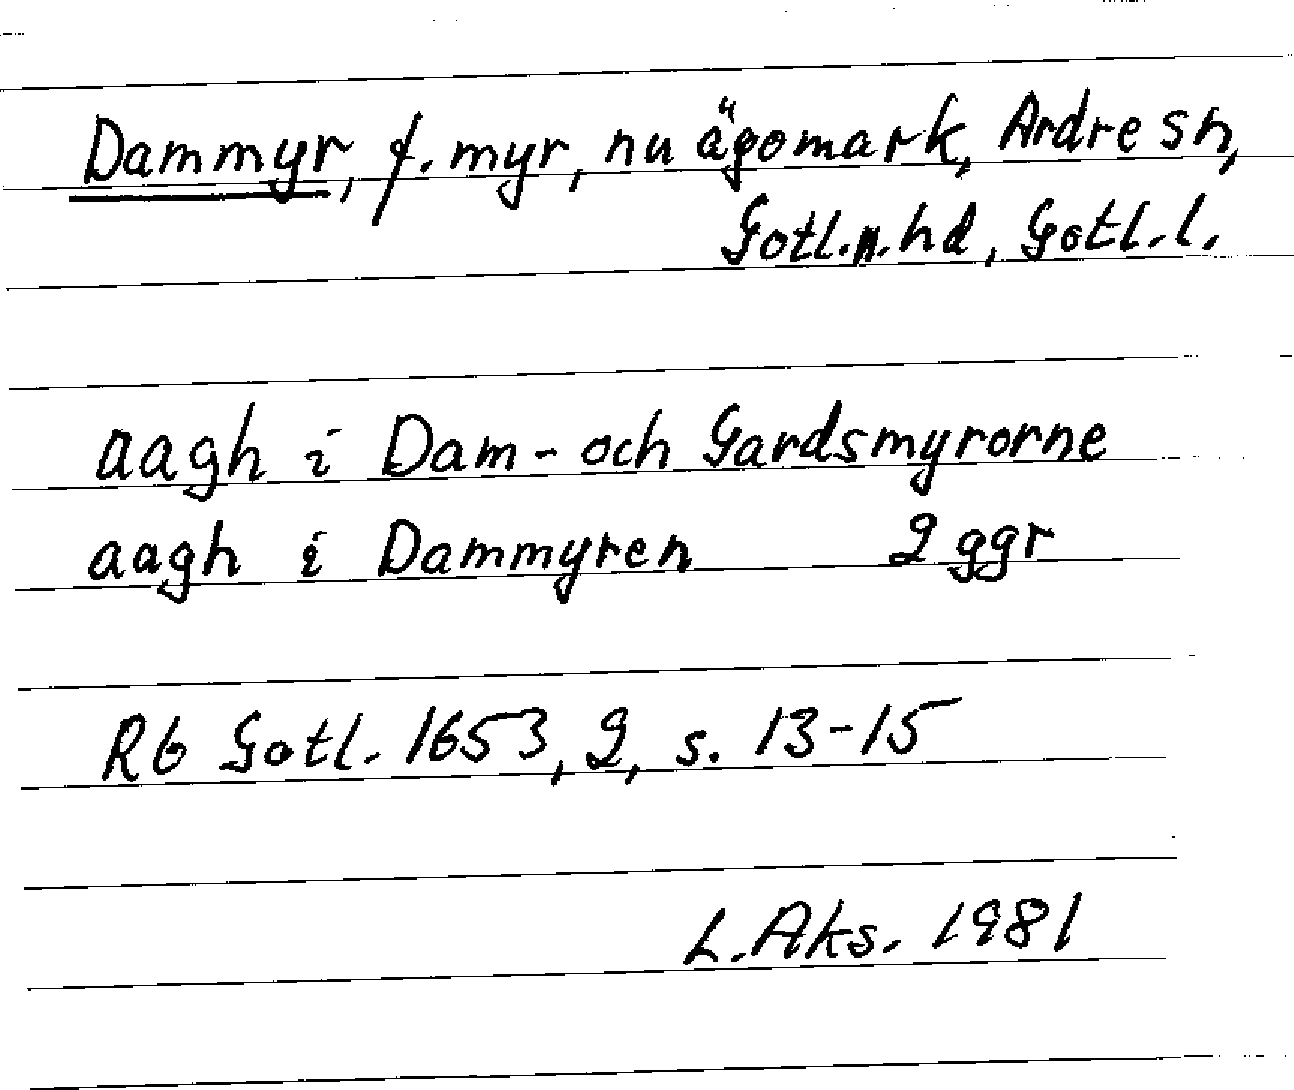 Dammyr, f. myr, nu ägomark, Ardre sn,
Gotl. n. hd, Gotl. l.
aagh i Dam- och Gardsmyrorne
aagh i Dammyren 2 ggr
Rb Gotl. 1653, 2, s. 13-15
L. Aks. 1981